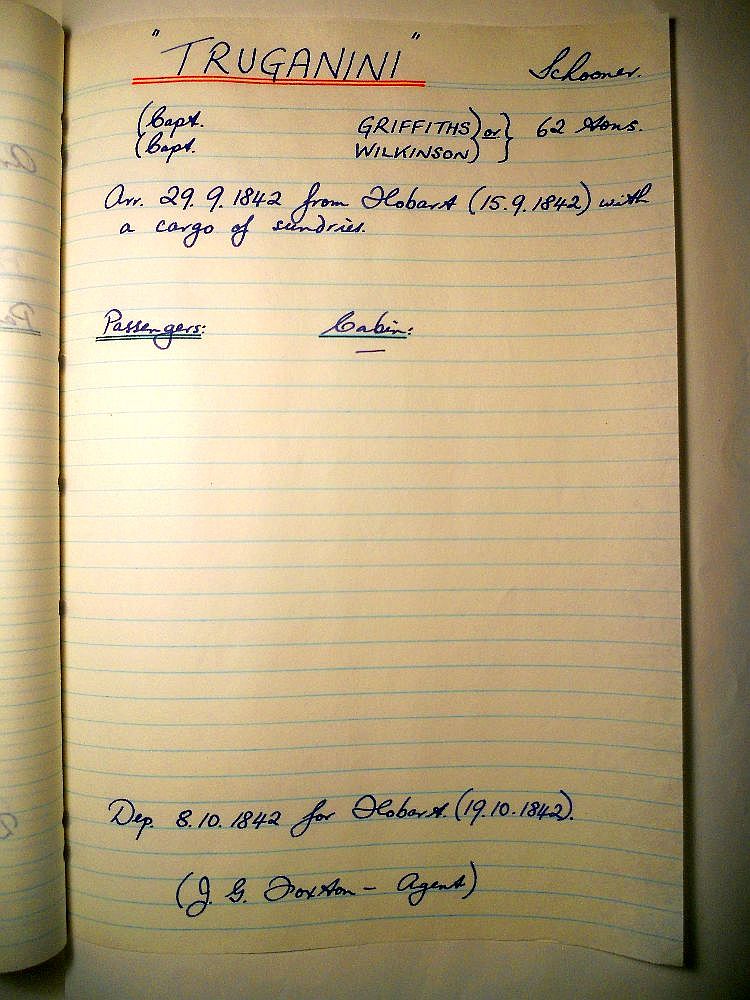 "TRUGANINI" Schooner.
(Capt. GRIFFITHS) or } 62 tons.
(Capt. WILKINSON)
Arr. 29.9.1842 from Hobart (15.9.1842) with
a cargo of sundries.
Passengers: Cabin:
—
Dep. 8.10.1842 for Hobart (19.10.1842).
(J. G. Foxton – Agent)